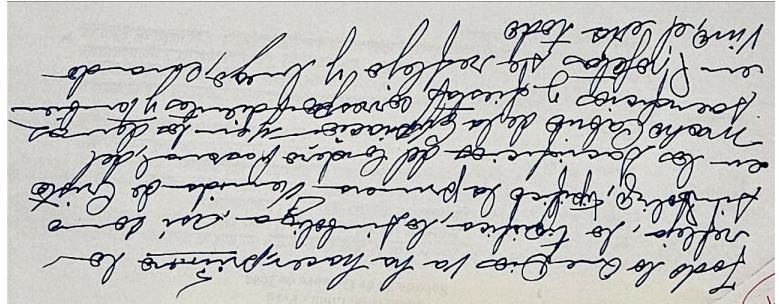 Todo lo que Dios va ha hacer, primero lo
refleja, lo tipifica, lo simboliza, así como
simbolizó, tipificó la primera Venida de Cristo
en los sacrificios del Cordero pascual, del
macho Cabrío de la expiación y en los demás
sacrificios y fiestas correspondientes y también
en Profetas se reflejó y luego, cuando
vino, él era todo